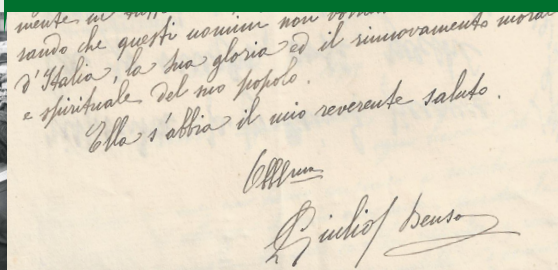 mente in
sando che questi uomini non
d'Italia, la sua gloria ed il rinnovamento
e spirituale del suo popolo.
Ella s'abbia il mio reverente saluto.
Giulio Bensa